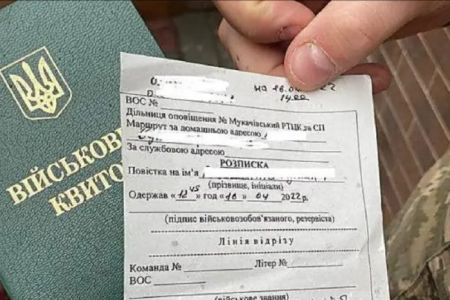 ВІЙСЬКОВ
КВИТО
на 16.04.22
14:00
ВОС №
Дільниця оповіщення № Мукачівський РТЦК та СП
Маршрут за домашньою адресою
За службовою адресою
РОЗПИСКА
Повістка на ім'я
(прізвище, ініціали)
Одержав «12 45» год «16» 04 2022 р.
(підпис військовозобов'язаного, резервіста)
Лінія відрізу
Команда № Літер №
ВОС
(військове звання)